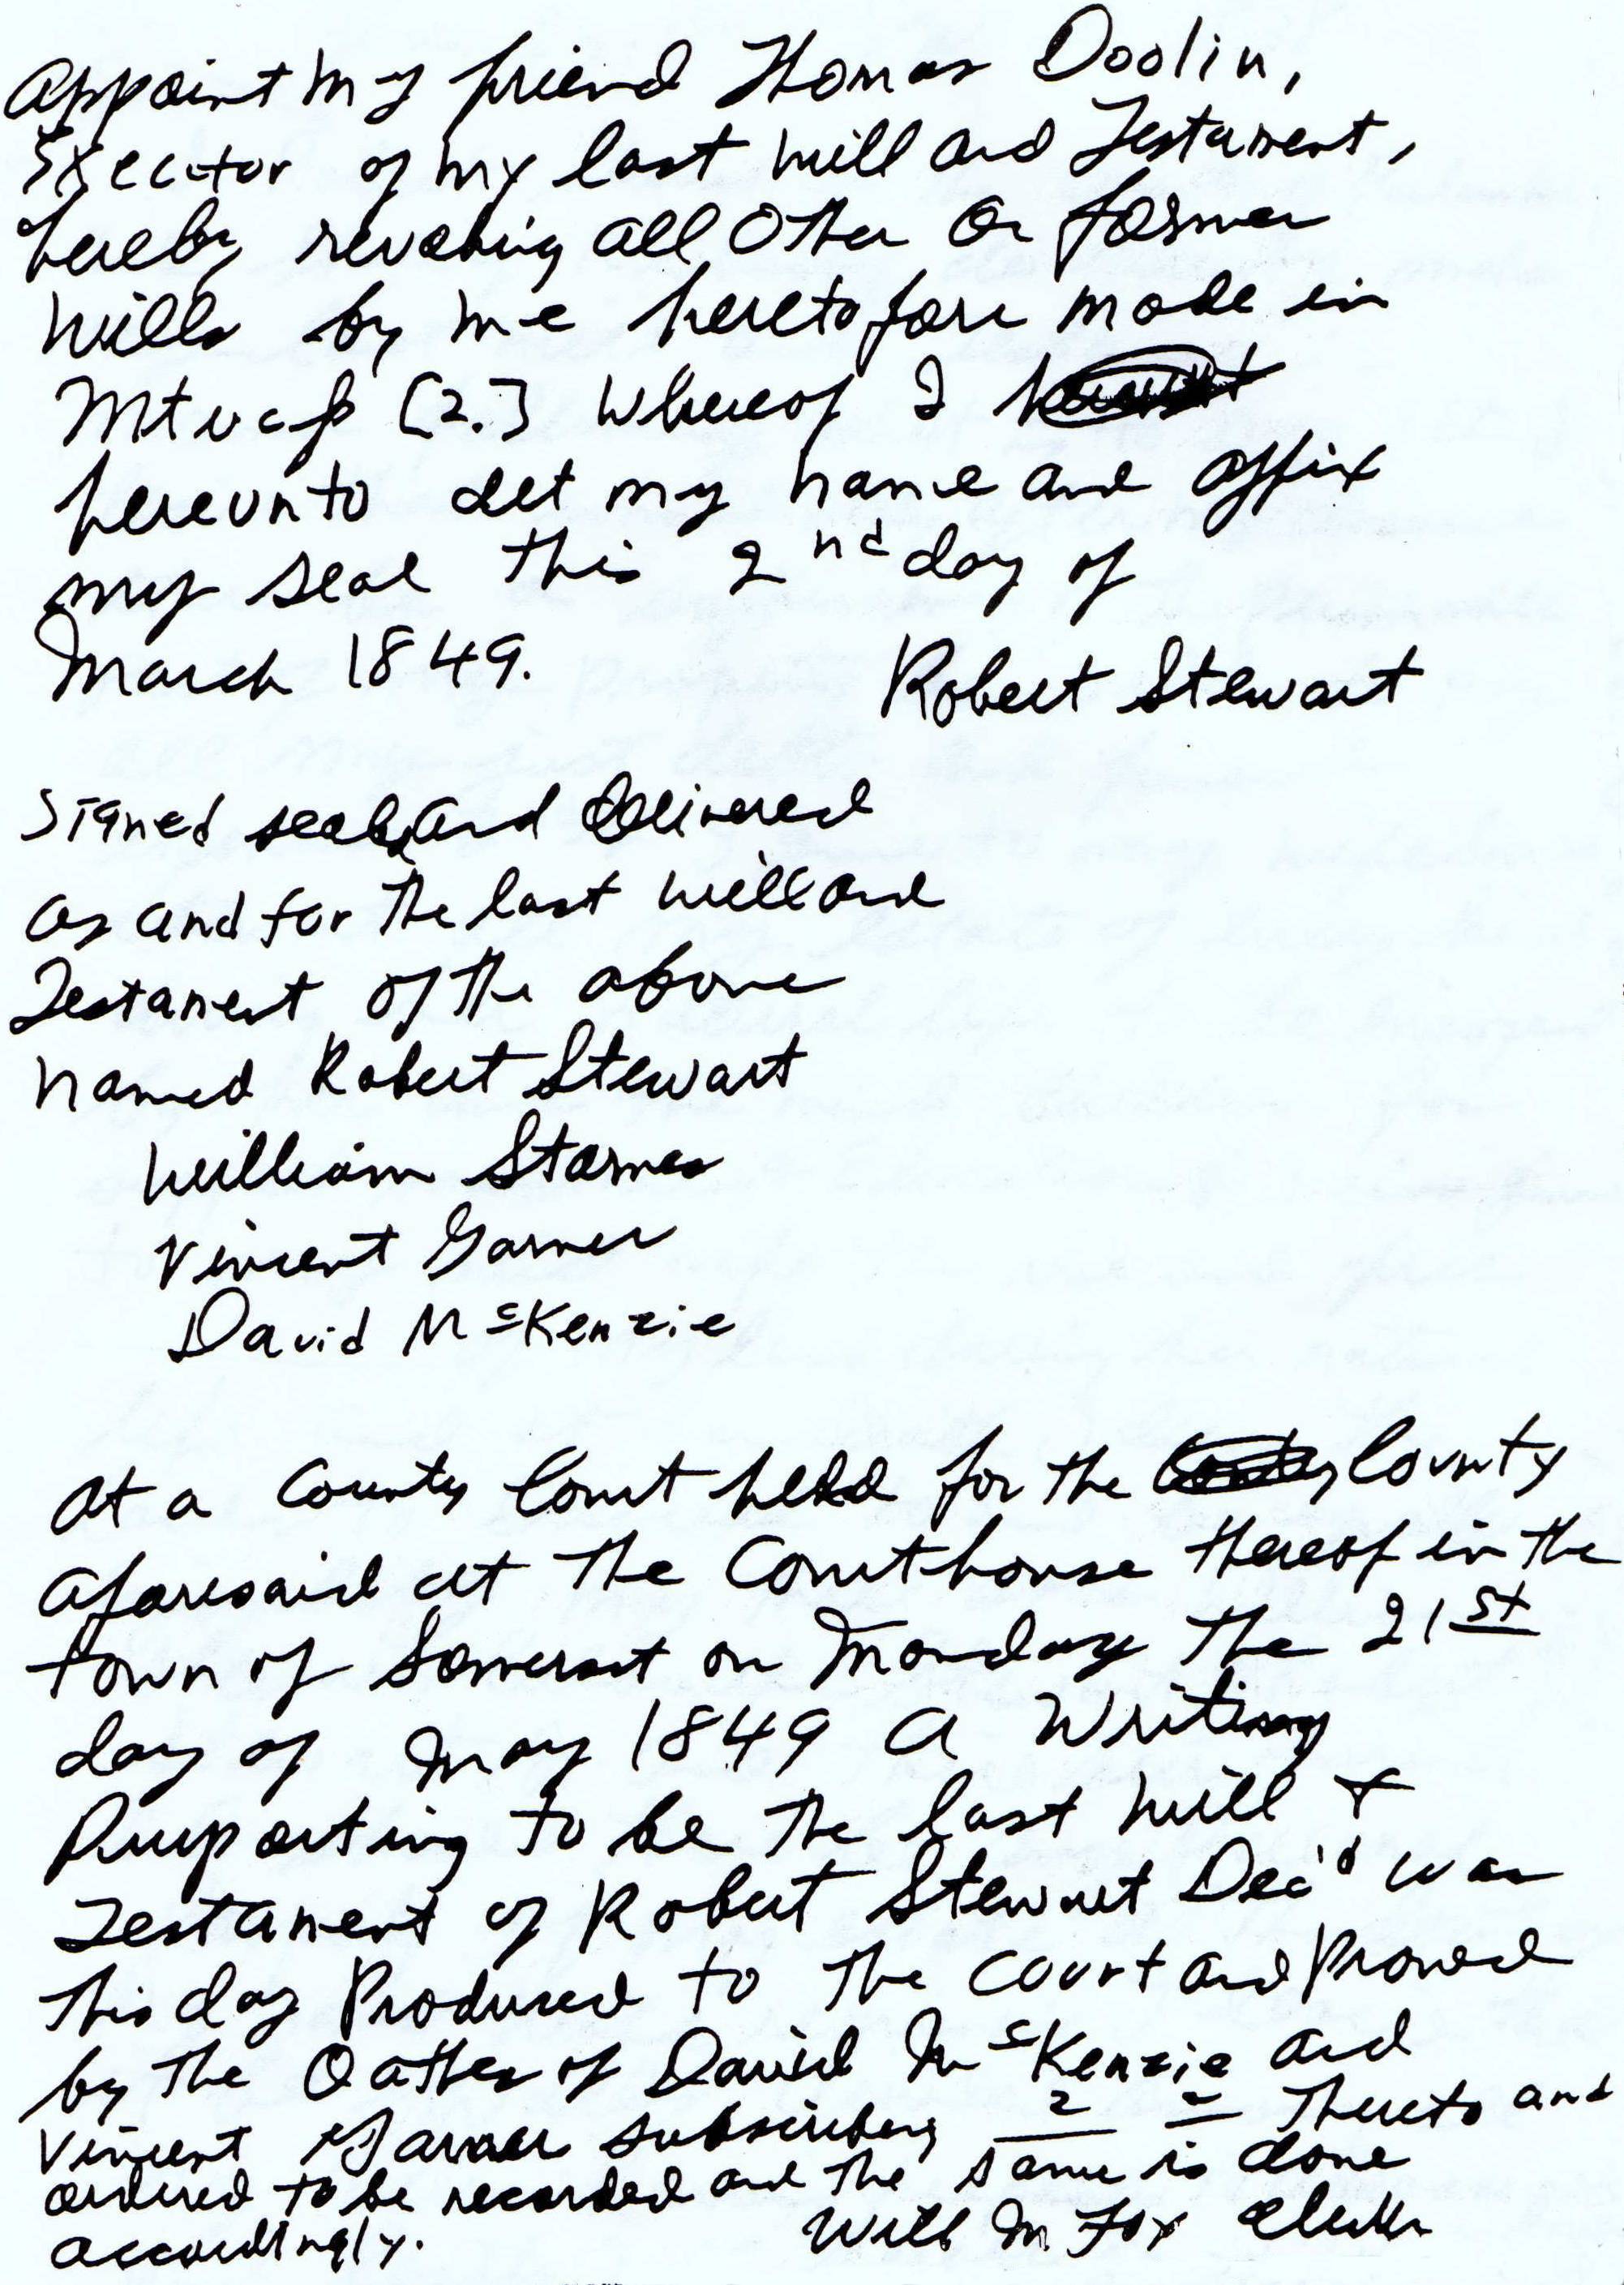 Appoint my friend Thomas Doolin,
Executor of my last will and Testament,
hereby revoking all Other Or former
wills by me heretofore made in
[2.] Whereof I
hereunto set my name and affix
my seal this 2nd day of
March 1849.
Robert Stewart
Signed seal, and Delivered
as and for the last will and
Testament of the above
named Robert Stewart
William Starnes
Vincent Garner
David McKenzie
At a County Court held for the County
aforesaid at the Courthouse thereof in the
town of Somerset on Monday the 21st
day of May 1849 a Writing
Purporting to be the last will +
Testament of Robert Stewart Dec'd was
this day Produced to the Court and Proved
by the Oathes of David McKenzie and
Vincent Garner subscribing ? = Thereto and
ordered to be recorded and the same is done
accordingly.
Will M Fox Clerk